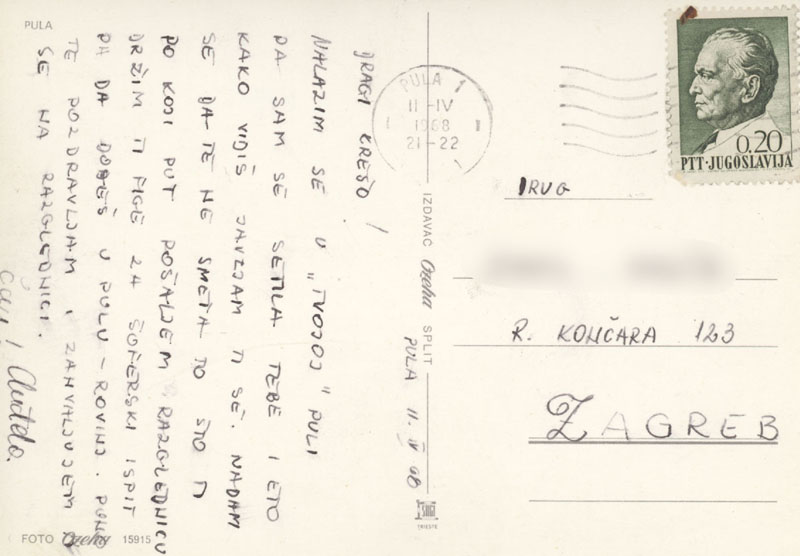 PULA
DRAGI KREŠO!
NALAZIM SE U „TVOJOJ" PULI
PA SAM SE SETILA TEBE I ETO
KAKO VIDIŠ JAVLJAM TI SE. NADAM
SE DA TE NE SMETA TO ŠTO TI
PO KOJI PUT POŠALJEM RAZGLEDNICU
DRŽIM TI FIGE ZA ŠOFERSKI ISPIT
PA DA DOĐEŠ U PULU - ROVINJ. PUNO
TE POZDRAVLJAM I ZAHVALJUJEM
SE NA RAZGLEDNICI.
Ćau!
FOTO Ozeha 15915
IZDAVAČ Ozeha SPLIT
PULA 11. IV 68
TRIESTE
PULA 1
11-IV
1968
21-22
0.20
PTT·JUGOSLAVIJA
DRUG
R. KONČARA 123
ZAGREB